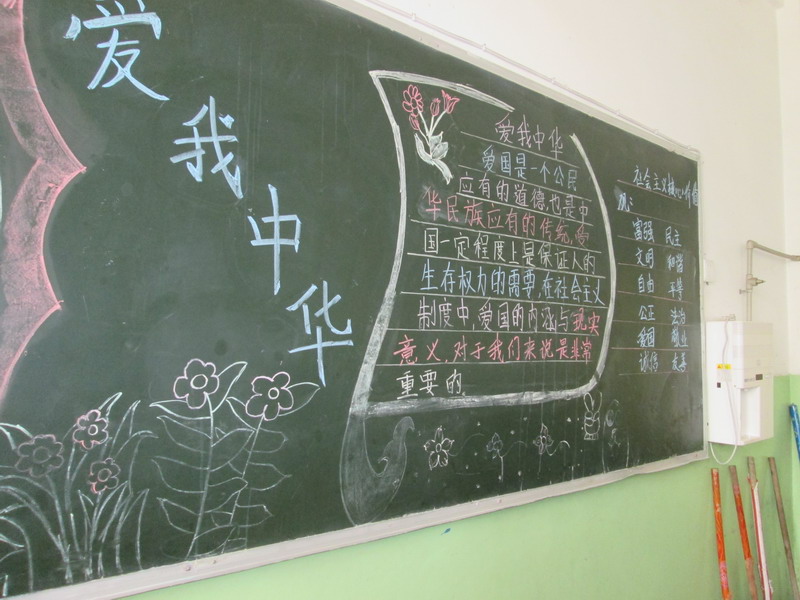 爱我中华
爱我中华
爱国是一个公民
应有的道德,也是中
华民族应有的传统,爱
国一定程度上是保证人的
生存权力的需要,在社会主义
制度中,爱国的内涵与现实
意义,对于我们来说是非常
重要的
社会主义核心价值
观:
富强 民主
文明 和谐
自由 平等
公正 法治
爱国 敬业
诚信 友善